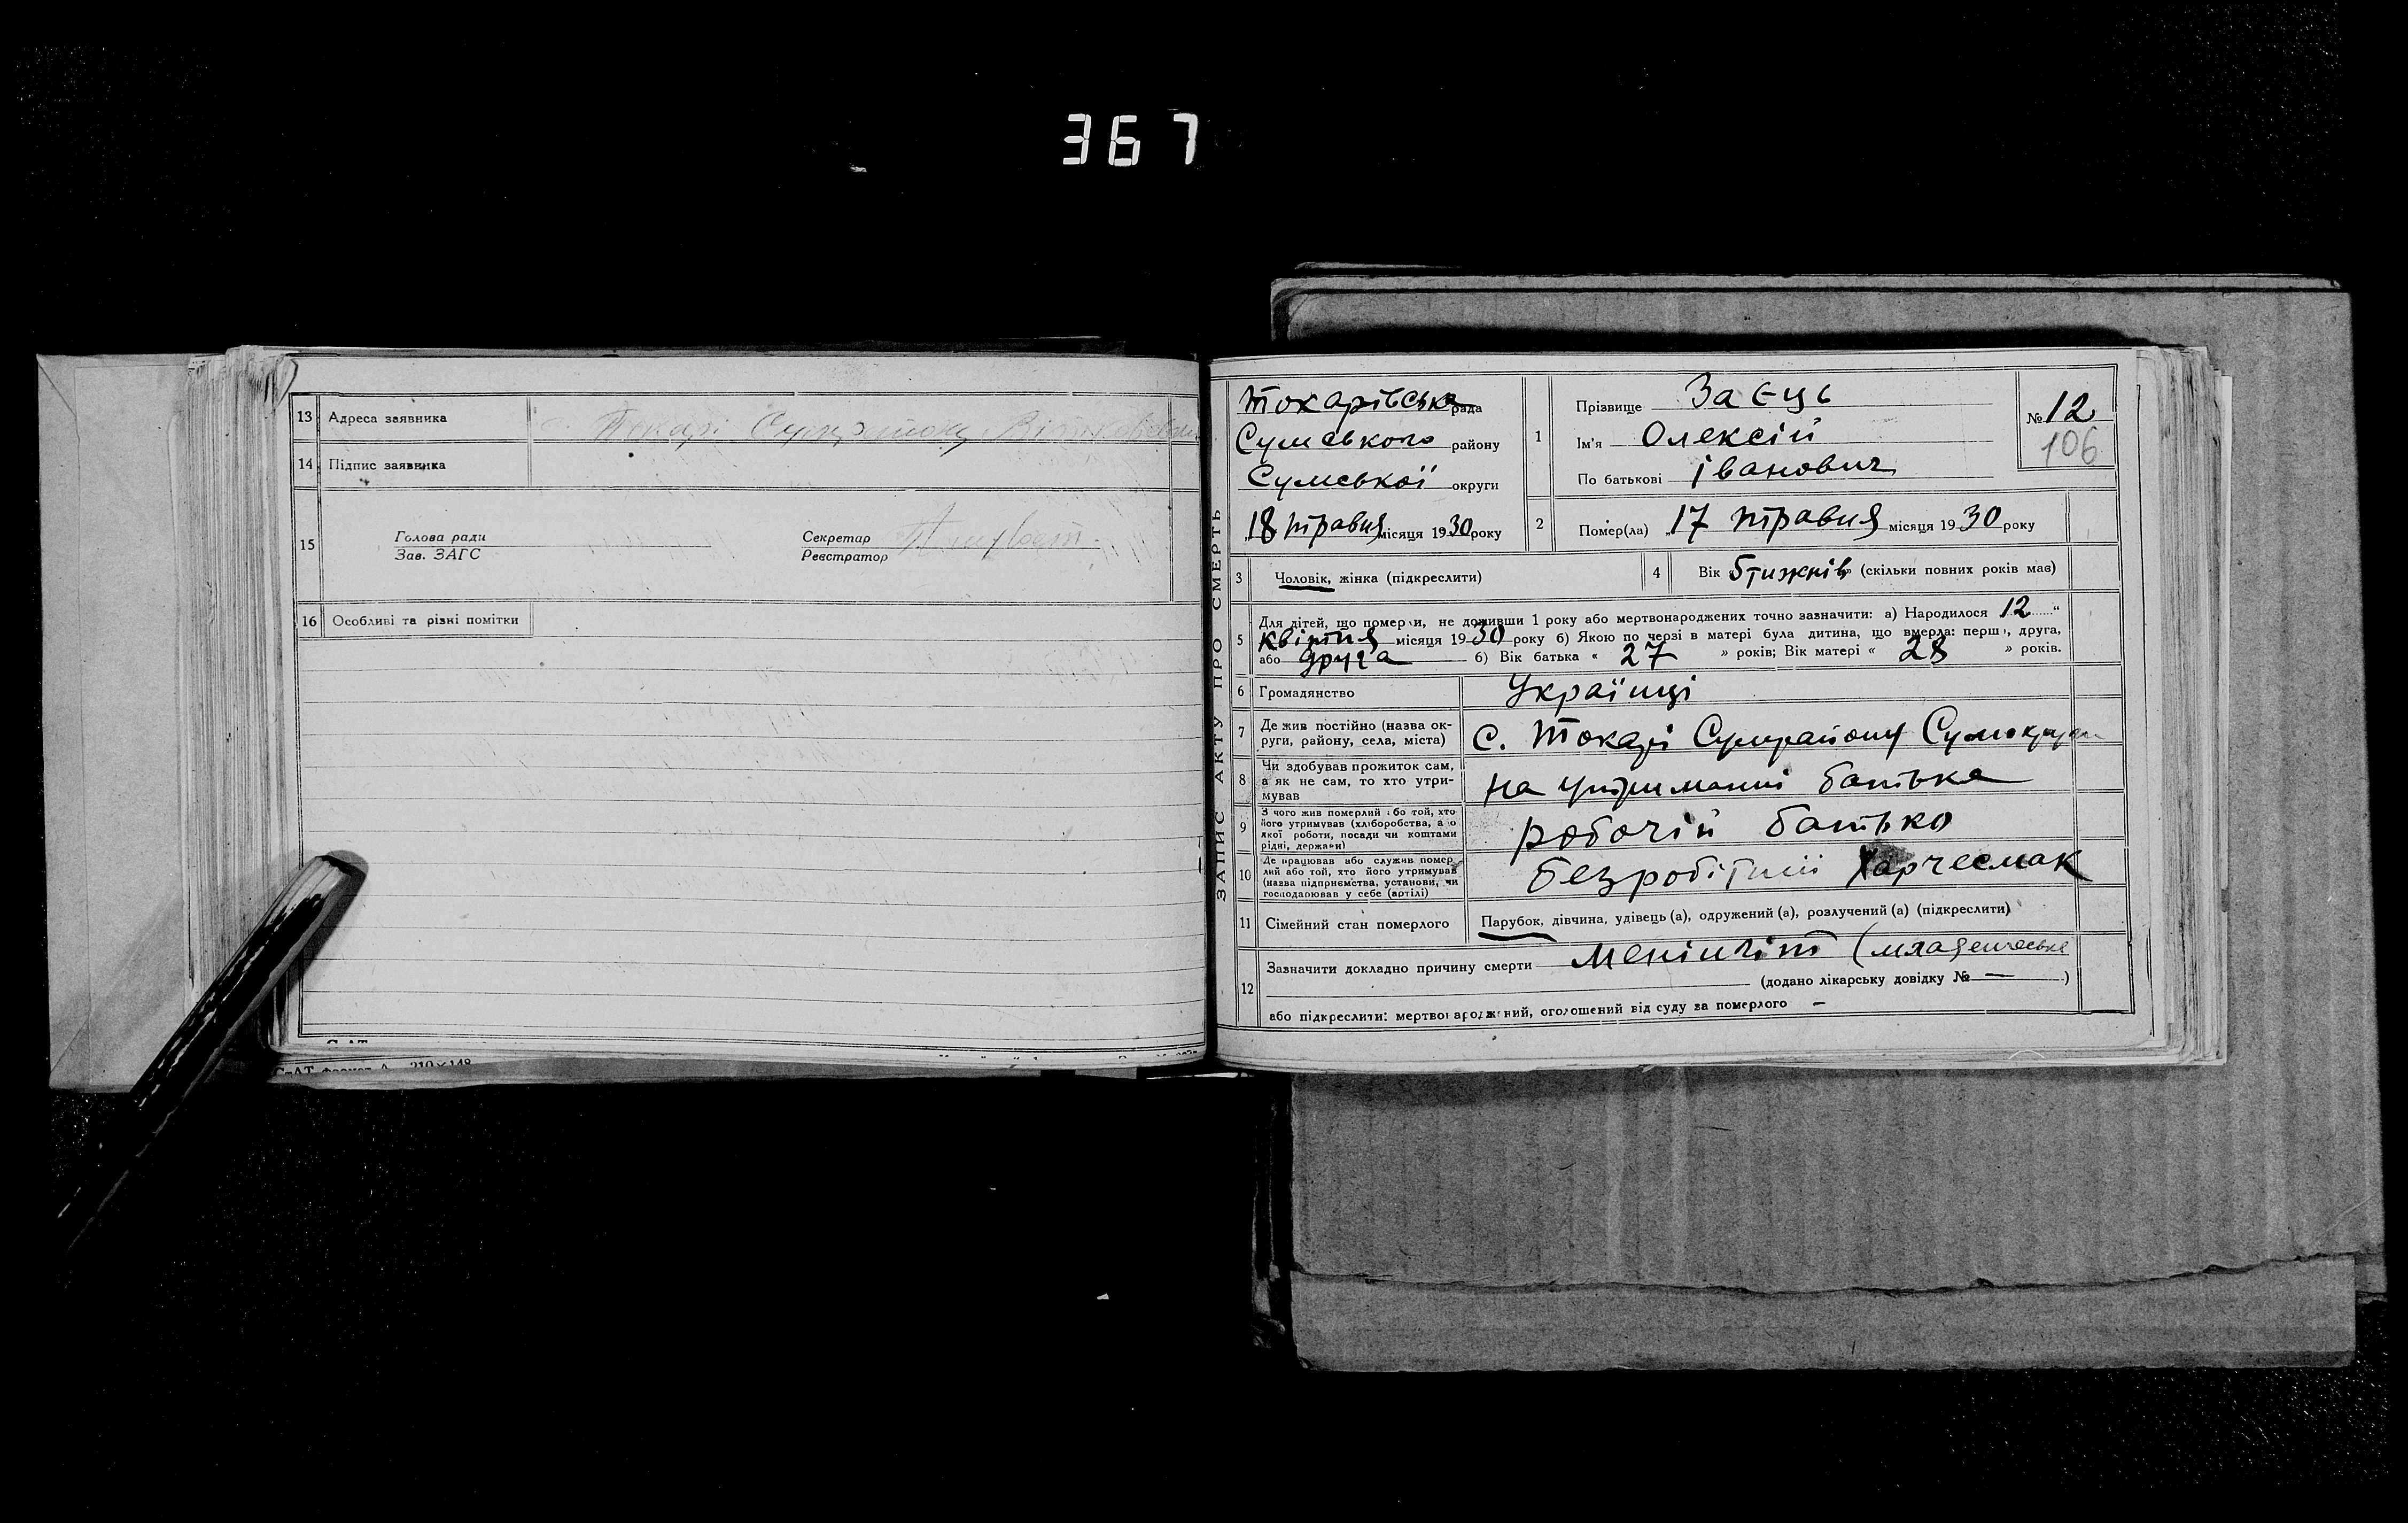 367
13 Адреса заявника
14 Підпис заявника
15 Голова ради
Зав. ЗАГС
Секретар
Реєстратор
16 Особливі та різні помітки
210×148
ЗАПИС АКТУ ПРО СМЕРТЬ
Токарівська рада
Сумського району
Сумської округи
„18 травня місяця 1930 року
1 Прізвище Заєць
Ім'я Олексій
По батькові Іванович
№ 12
106
2 Помер(ла) „17 травня місяця 1930 року
3 Чоловік, жінка (підкреслити)
4 Вік „5 тижнів" (скільки повних років має)
5 Для дітей, що померли, не доживши 1 року або мертвонароджених точно зазначити: а) Народилося 12 "
квітня місяця 1930 року б) Якою по черзі в матері була дитина, що вмерла: перша, друга,
або друга б) Вік батька « 27 » років; Вік матері « 28 » років.
6 Громадянство Українці
7 Де жив постійно (назва ок-
руги, району, села, міста) с. Токарі Сумрайону
8 Чи здобував прожиток сам,
а як не сам, то хто утри-
мував на утриманні батька
9 З чого жив померлий або той, хто
його утримував (хліборобства, або
якої роботи, посади чи коштами
рідні, держави) робочій батько
10 Де працював або служив помер
лий або той, хто його утримував
(назва підприємства, установи, чи
господарював у себе (артілі) безробітній
11 Сімейний стан померлого Парубок, дівчина, удівець (а), одружений (а), розлучений (а) (підкреслити)
12 Зазначити докладно причину смерти Менінгіт (младенческе
(додано лікарську довідку № — )
або підкреслити: мертвонароджений, оголошений від суду за померлого –